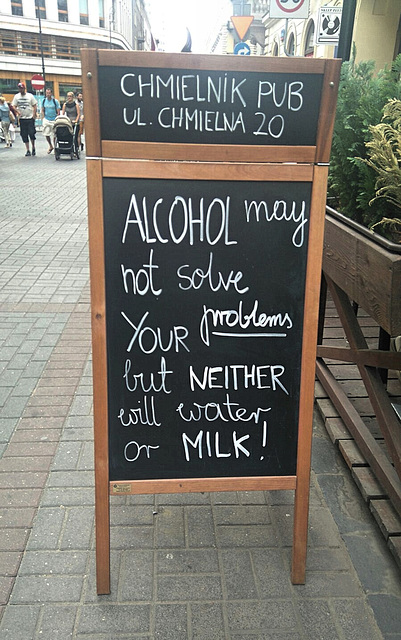 CHMIELNIK PUB
UL. CHMIELNA 20
ALCOHOL may
not solve
YOUR problems
but NEITHER
will water
or MILK!